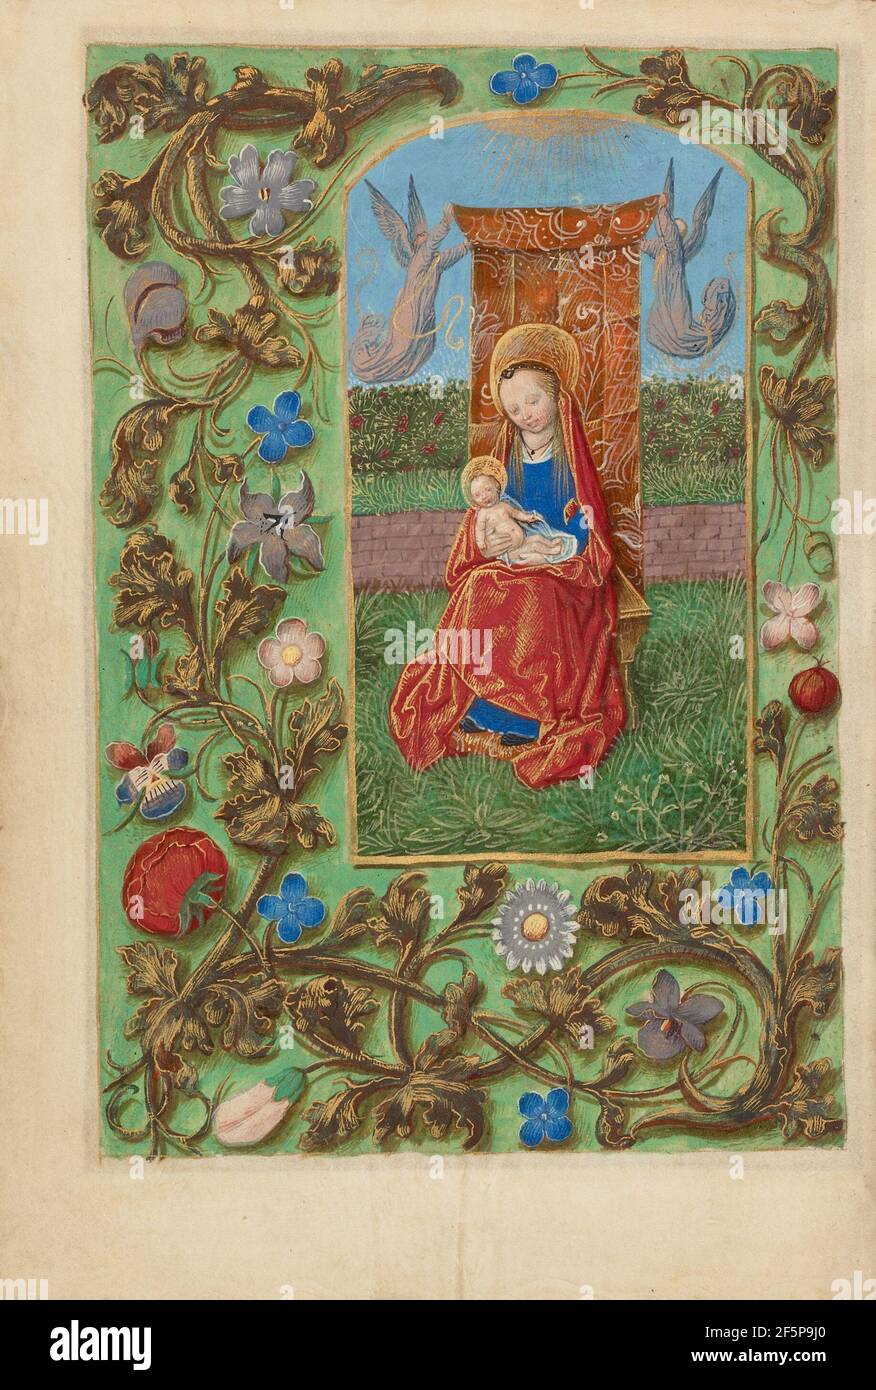 alamy
Image ID: 2F5P9J0
www.alamy.com